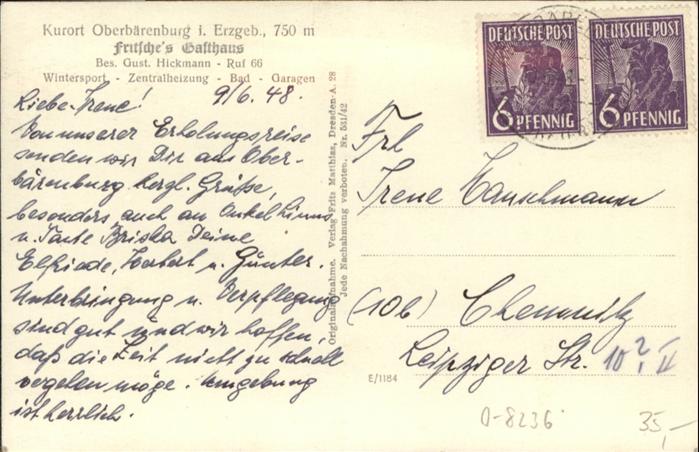 Kurort Oberbärenburg i. Erzgeb., 750 m
Fritsche's Gasthaus
Bes. Gust. Hickmann - Ruf 66
Wintersport - Zentralheizung - Bad - Garagen
9/6.48.
Liebe Irene!
Von unserer Erholungsreise
senden wir Dir aus Ober-
bärenburg herzl. Grüße,
besonders auch an Onkel
u. Tante Deine
Elfriede, Herbert u. Günter.
Unterbringung u. Verpflegung
sind gut und wir hoffen,
daß die Zeit nicht zu schnell
vergehen möge. Umgebung
ist herrlich.
Originalaufnahme. Verlag Fritz Matthias, Dresden-A. 28
Jede Nachahmung verboten. Nr. 531/42
E/1184
DEUTSCHE POST
6 PFENNIG
DEUTSCHE POST
6 PFENNIG
Frl
Irene
(10b) Chemnitz
Leipziger Str. 10 ? II
0-8236
35,-